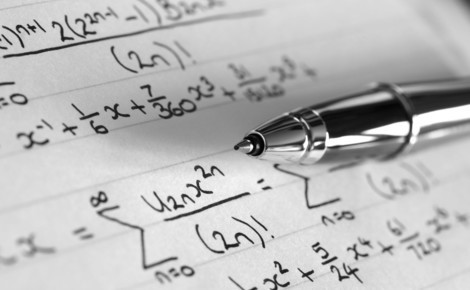 1)ⁿ⁺¹ 2(2²ⁿ⁻¹ - 1)B2nx
(2n)!
=0
x⁻¹ + 1/6 x + 7/360 x³ + 31/15120 x⁵ +
∞ U2nx²ⁿ
x = Σ ――― = Σ
(2n)! (2n)!
n=0 n=0
x² + 5/24 x⁴ + 61/720 x⁶ +